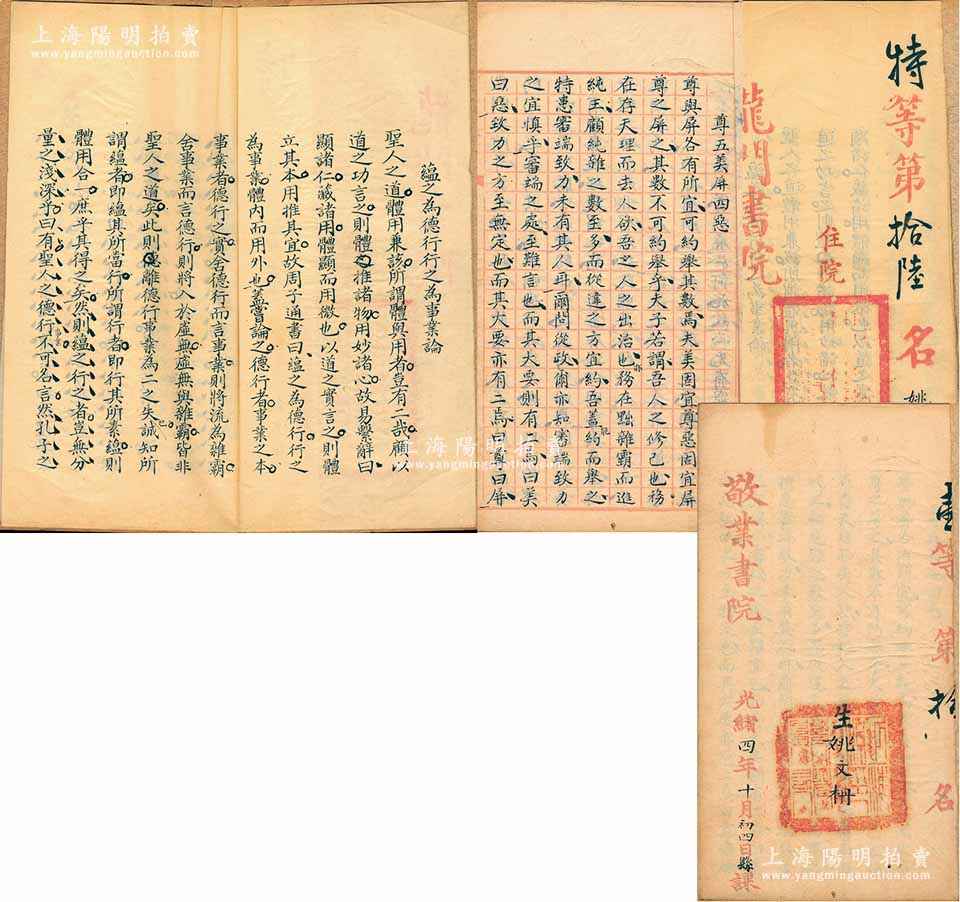 上海陽明拍賣
www.yangmingauction.com
蘊之為德行行之為事業論
聖人之道體用兼該所謂體與用者豈有二哉顧以
道之功言之則體推諸物用妙諸心故易繫辭曰
顯諸仁藏諸用體顯而用微也以道之實言之則體
立其本用推其宜故周子通書曰蘊之為德行行之
為事業體內而用外也蓋嘗論之德行者事業之本
事業者德行之實舍德行而言事業則將流為雜霸
舍事業而言德行則將入於虛無虛無與雜霸皆非
聖人之道矣此則離德行事業為二之失誠知所
謂蘊者即蘊其所當行所謂行者即行其所素蘊則
體用合一庶乎其得之矣然則蘊之行之者豈無分
量之淺深乎曰有聖人之德行不可名言然孔子之
尊五美屏四惡
尊與屏各有所宜可約舉其數焉夫美固宜尊惡固宜屏
尊之屏之其數不可約舉乎夫子若謂吾人之修己也務
在存天理而去人欲吾之人之出治也務在黜雜霸而進
純王顧純雜之數至多而從違之方宜約吾蓋約而舉之
特患審端致力未有其人耳爾問從政爾亦知審端致力
之宜慎乎審端之處至難言也而其大要則有二焉曰美
曰惡致力之方至無定也而其大要亦有二焉曰尊曰屏
特等第拾陸名
住院
龍門書院
姚
上海陽明拍賣
www.yangmingauction.com
壹等第拾名
生姚文枬
敬業書院
光緒四年十月初四日縣課
上海陽明拍賣
www.yangmingauction.com